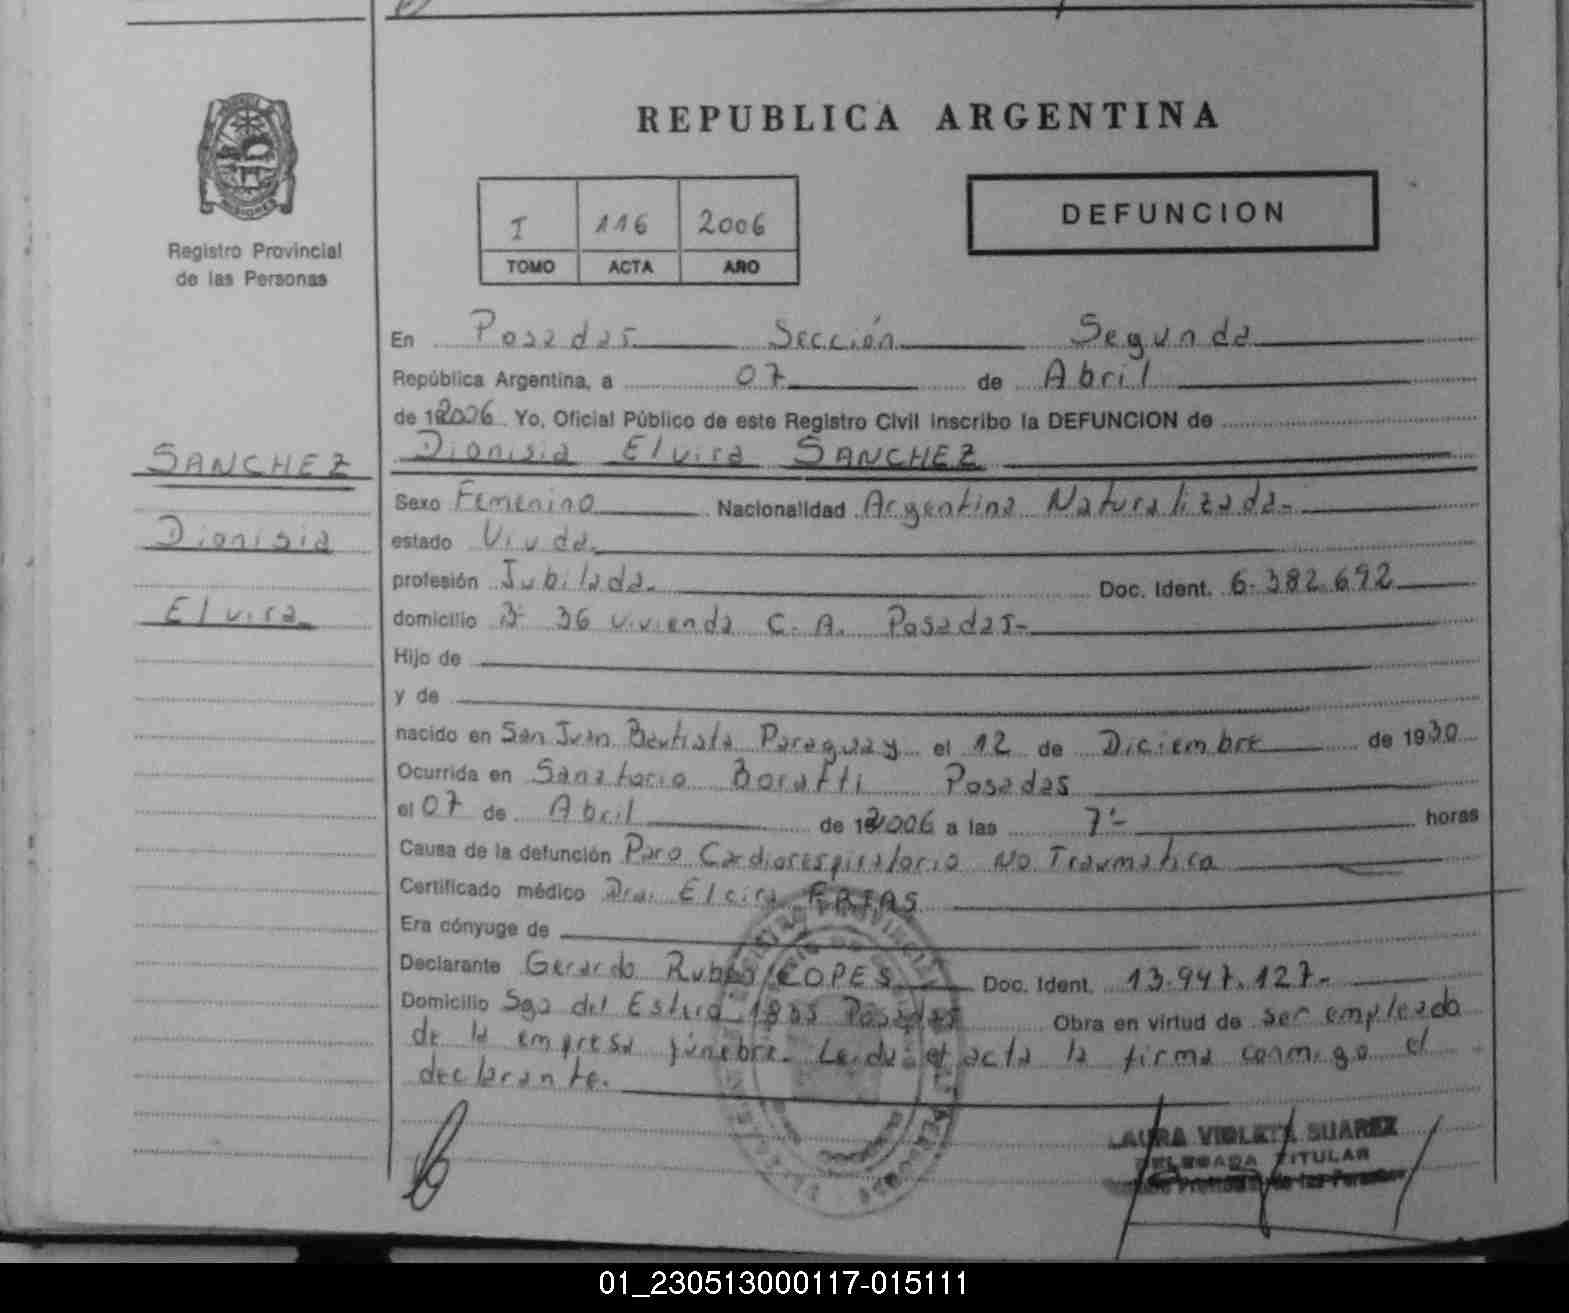 REPUBLICA ARGENTINA
MISIONES
Registro Provincial
de las Personas
I 116 2006
TOMO ACTA AÑO
DEFUNCION
En Posadas Sección Segunda
República Argentina, a 07 de Abril
de 2006 Yo, Oficial Público de este Registro Civil inscribo la DEFUNCION de
Dionisia Elvira SANCHEZ
SANCHEZ
Dionisia
Elvira
Sexo Femenino Nacionalidad Argentina Naturalizada-
estado Viuda.
profesión Jubilada. Doc. Ident. 6.382.692
domicilio 36 vivienda C. A. Posadas-
Hijo de
y de
nacido en San Juan Bautista Paraguay el 12 de Diciembre de 1930
Ocurrida en Sanatorio Boratti Posadas
el 07 de Abril de 2006 a las 7- horas
Causa de la defunción Paro Cardiorespiratorio No Traumatica
Certificado médico Dra. Elcira FRIAS
Era cónyuge de
Declarante Gerardo Ruben COPES Doc. Ident. 13.947.127-
Domicilio Sgo del Estero Posadas Obra en virtud de ser empleado
de la empresa fúnebre. Leida el acta la firma conmigo el
declarante.
LAURA VIOLETA SUAREZ
DELEGADA TITULAR
Provincial de las Personas
01_230513000117-015111